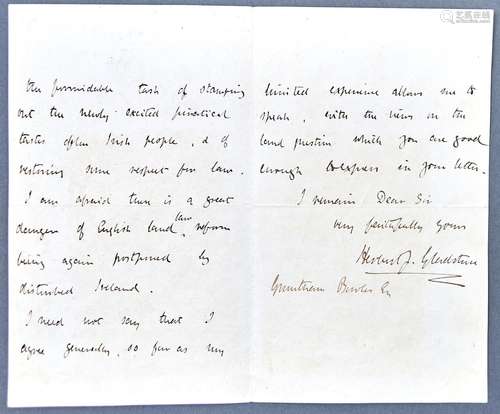 the formidable task of stamping
out the newly-excited piratical
tastes of the Irish people, & of
restoring some respect for law.
I am afraid there is a great
danger of English land law reform
being again postponed by
disturbed Ireland.
I need not say that I
agree generally, so far as my
limited experience allows me to
speak, with the views on the
land question which you are good
enough to express in your letter.
I remain Dear Sir
very faithfully yours
Herbert J. Gladstone
Bowles Esq